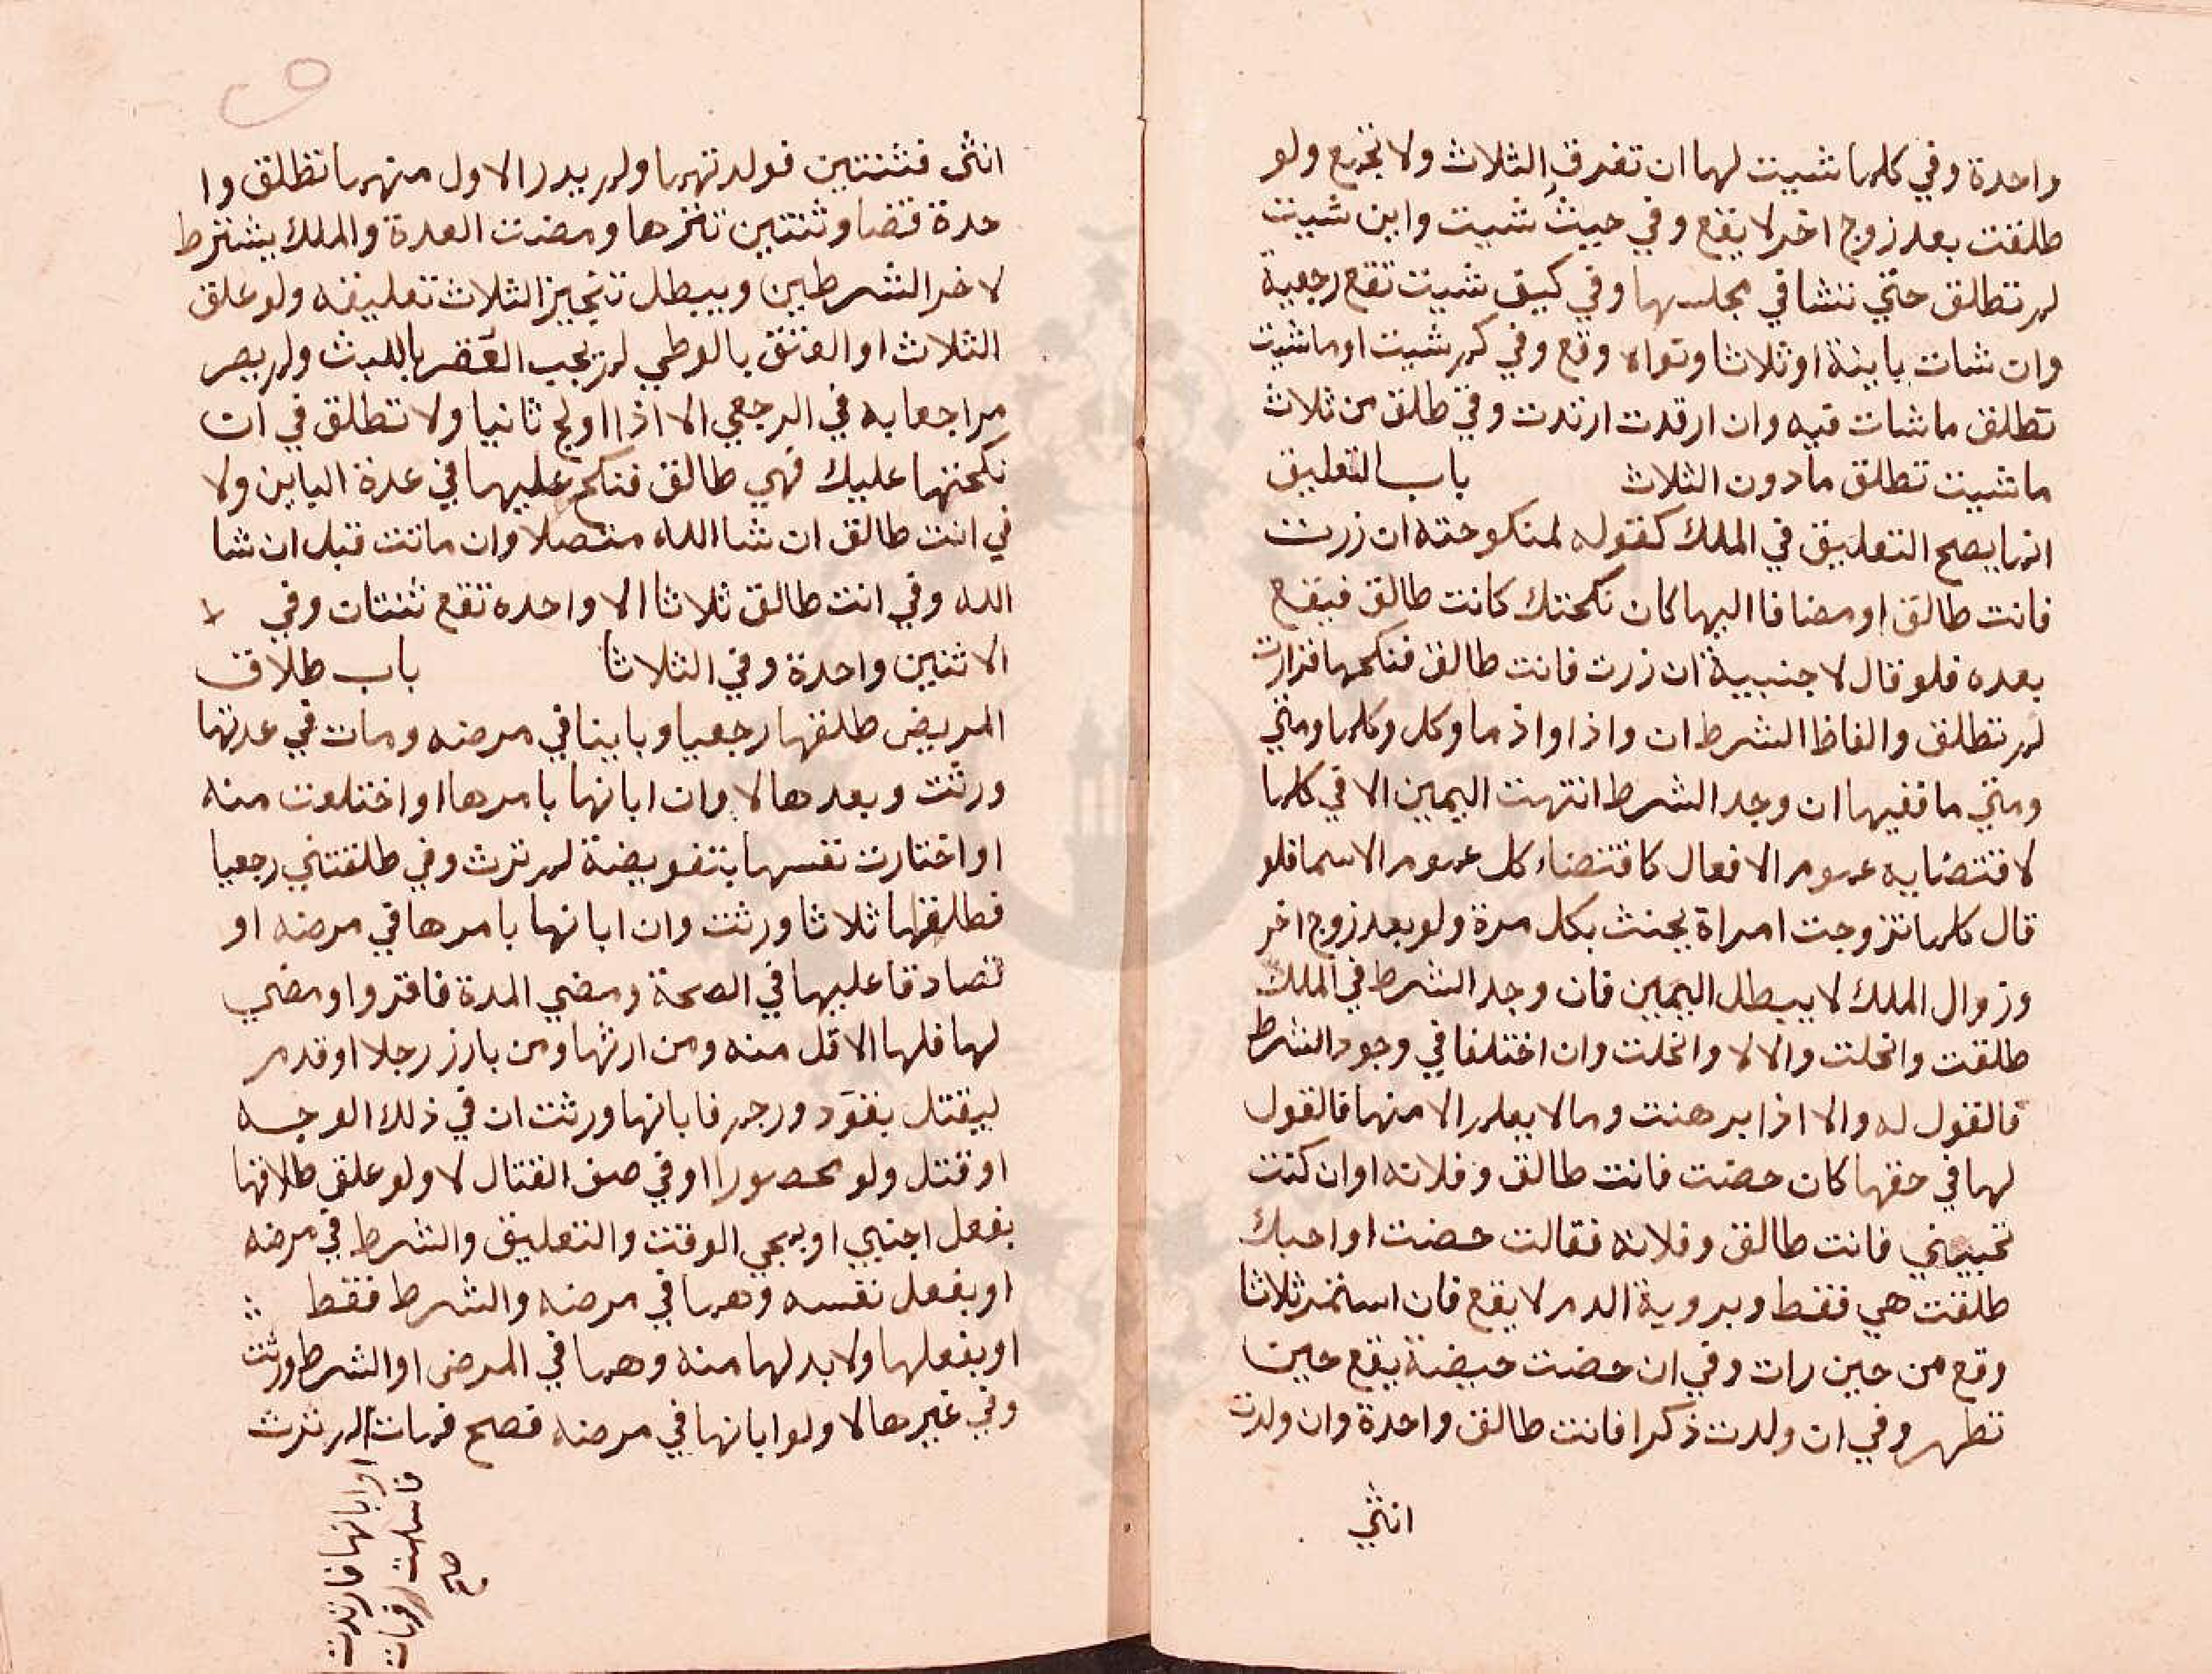 واحدة وفي كلما شيت لها ان تفرق الثلاث ولا تجمع ولو
طلقت بعد زوج اخر لا يقع وفي حيث شيت واين شيت
لم تطلق حتي تشا في مجلسها وفي كيف شيت تقع رجعية
وان شات باينة او ثلاثا ونواه وقع وفي كم شيت او ما شيت
تطلق ما شات فيه وان ارتدت ارتدت وفي طلق من ثلاث
ما شيت تطلق ما دون الثلاث باب التعليق
انما يصح التعليق في الملك كقوله لمنكوحته ان زرت
فانت طالق او مضافا اليها كان نكحتك كانت طالق فيقع
بعده فلو قال لاجنبية ان زرت فانت طالق فنكحها فزارت
لم تطلق والفاظ الشرط ان واذا واذ ما وكل وكلما ومتي
ومتي ما ففيها ان وجد الشرط انتهت اليمين الا في كلما
لاقتضايه عموم الافعال كاقتضاء كل عموم الاسما فلو
قال كلما تزوجت امراة يحنث بكل مرة ولو بعد زوج اخر
وزوال الملك لا يبطل اليمين فان وجد الشرط في الملك
طلقت وانحلت والا لا وانحلت وان اختلفا في وجود الشرط
فالقول له والا اذا برهنت وما لا يعلم الا منها فالقول
لها في حقها كان حضت فانت طالق وفلانه او ان كنت
تحبيني فانت طالق وفلانه فقالت حضت او احبك
طلقت هي فقط وبروية الدم لا يقع فان استمر ثلاثا
وقع من حين رات وفي ان حضت حيضة يقع حين
تطهر وفي ان ولدت ذكرا فانت طالق واحدة وان ولدت
انثي
انثى فثنتين فولدتهما ولم يدر الاول منهما تطلق وا
حدة قضا وثنتين تنزها ومضت العدة والملك يشترط
لاخر الشرطين ويبطل تنجيز الثلاث تعليقه ولو علق
الثلاث او العتق بالوطي لم يجب العقر باللبث ولم يصر
مراجعا به في الرجعي الا اذا اولج ثانيا ولا تطلق في ان
نكحتها عليك فهي طالق فنكح عليها في عدة الباين ولا
في انت طالق ان شا الله متصلا وان ماتت قبل ان شا
الله وفي انت طالق ثلاثا الا واحده تقع ثنتان وفي
الا ثنين واحدة وفي الثلاثا باب طلاق
المريض طلقها رجعيا وباينا في مرضه ومات في عدتها
ورثت وبعدها لا وان ابانها بامرها او اختلعت منه
او اختارت نفسها بتفويضة لم ترث وفي طلقتني رجعيا
فطلقها ثلاثا ورثت وان ابانها بامرها في مرضه او
تصادقا عليها في الصحة ومضي المدة فاقر او اوصي
لها فلها الاقل منه ومن ارثها ومن بارز رجلا او قدم
ليقتل بقود ورجم فابانها ورثت ان في ذلك الوجه
او قتل ولو محصورا او في صف القتال لا ولو علق طلاقها
بفعل اجنبي او بمجي الوقت والتعليق والشرط في مرضه
او بفعل نفسه وهما في مرضه والشرط فقط
او بفعلها ولا بد لها منه وهما في المرض او الشرط ورثت
وفي غيرها لا ولو ابانها في مرضه فصح فمات لم ترث
او ابانها فارتدت
فاسلمت فمات
صح